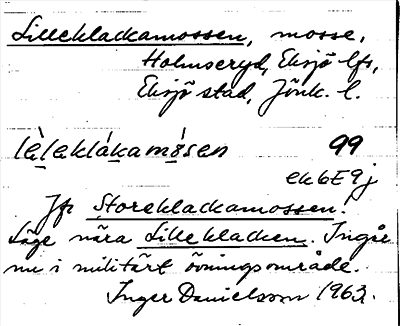 Lilleklackamossen, mosse,
Holmseryd, Eksjö lfs,
Eksjö stad, Jönk. l.
lèleklákamósen 99
ek6E9j
Jfr Storeklackamossen.
Läge nära Lilleklacken. Ingår
nu i militärt övningsområde.
Inger Danielsson 1963.